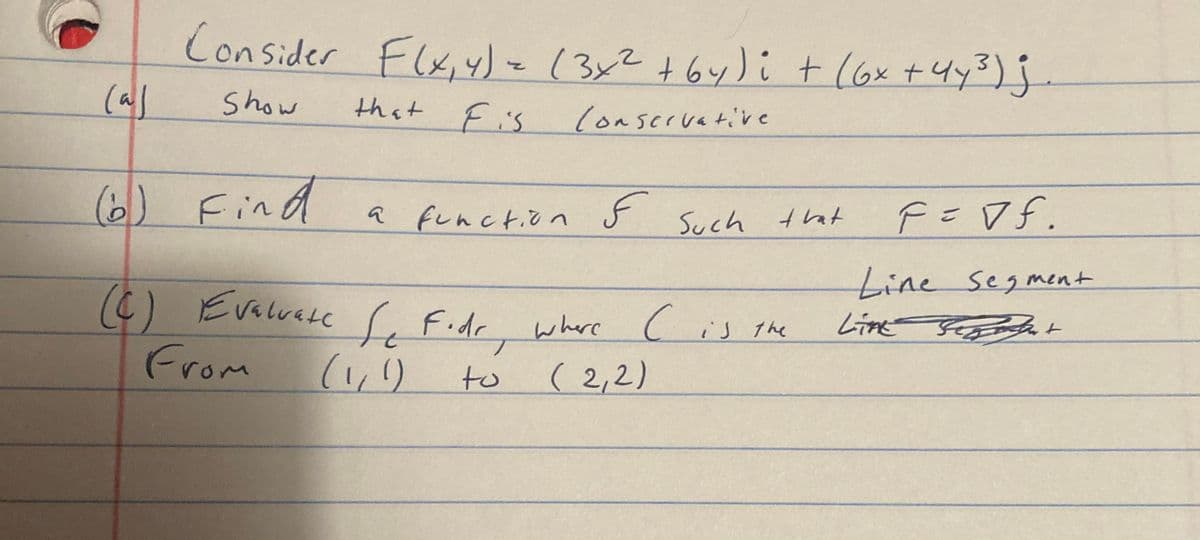 Consider F(x,y) = (3x² + 6y)i + (6x + 4y³)j.
(a) Show that F is Conservative
(b) Find a function f such that F = ∇f.
(c) Evaluate ∫c F·dr, where C is the Line Segment
From (1,1) to (2,2)